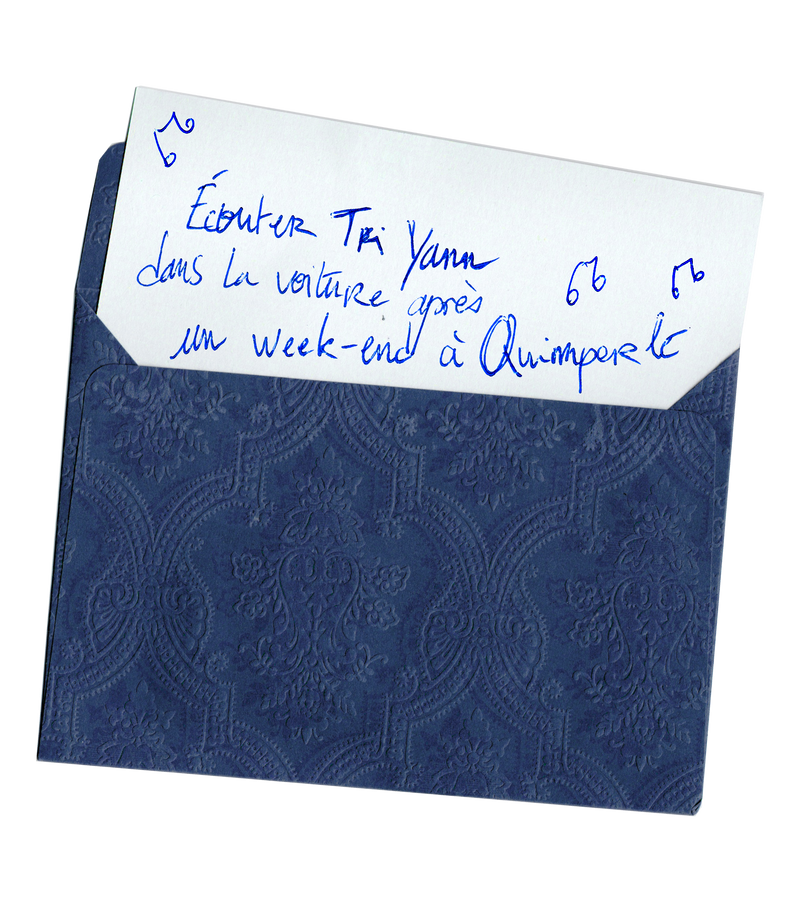 Écouter Tri Yann
dans la voiture après
un week-end à Quimperlé